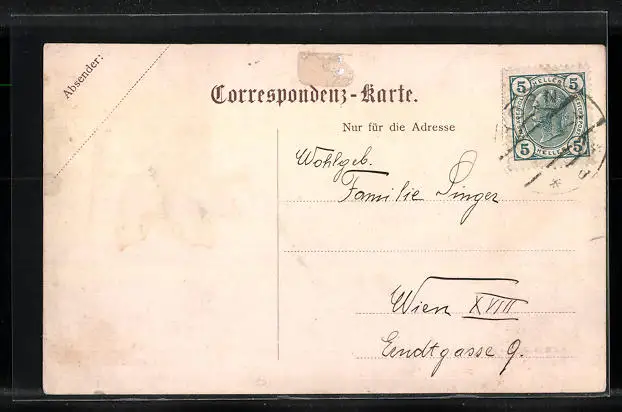 Absender:
Correspondenz-Karte.
Nur für die Adresse
5 HELLER 5
5 HELLER 5
Wohlgeb.
Familie Singer
Wien XVIII
Eendtgasse 9.